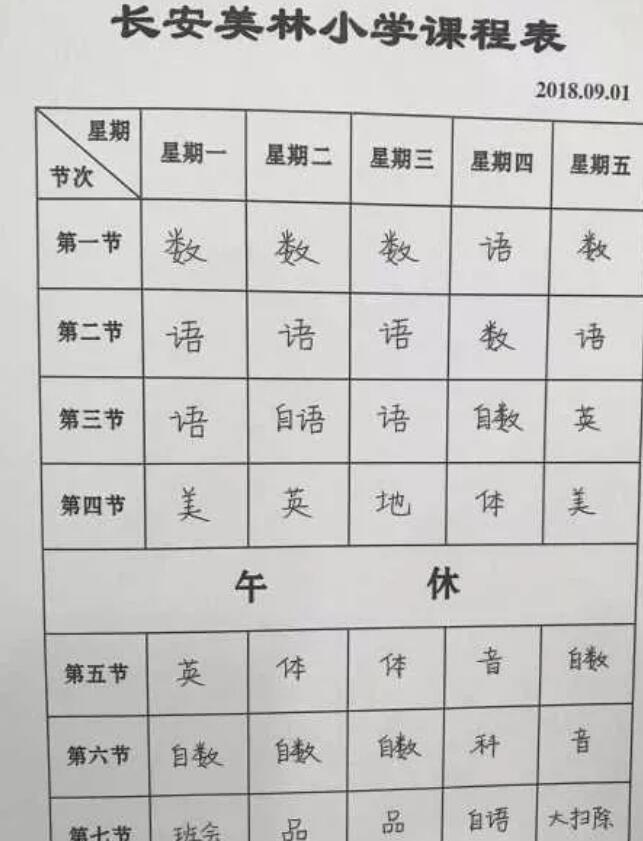 长安美林小学课程表
2018.09.01
星期 节次 星期一 星期二 星期三 星期四 星期五
第一节 数 数 数 语 数
第二节 语 语 语 数 语
第三节 语 自语 语 自数 英
第四节 美 英 地 体 美
午 休
第五节 英 体 体 音 自数
第六节 自数 自数 自数 科 音
第七节 班会 品 品 自语 大扫除